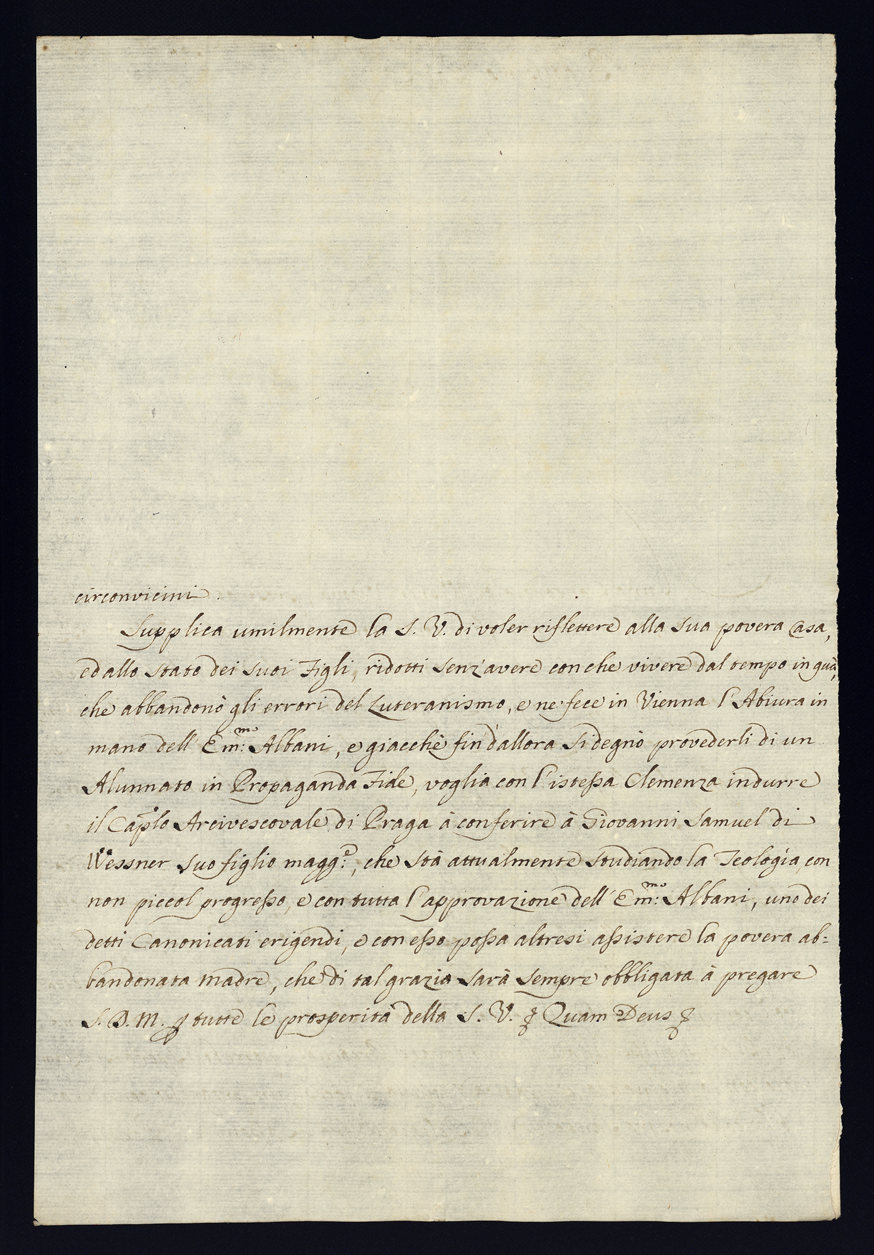 circonvicini.
Supplica umilmente la S. V. di voler riflettere alla sua povera Casa,
ed allo stato dei suoi Figli, ridotti senz'avere con che vivere dal tempo in quà,
che abbandonò gli errori del Luteranismo, e ne fece in Vienna l'Abiura in
mano dell' Em̃:mo Albani, e giacchè fin d'allora si degnò provederli di un
Alunnato in Propaganda Fide, voglia con l'istessa Clemenza indurre
il Cap̃lo Arcivescovale di Praga à conferire à Giovanni Samuel di
Wessner suo figlio magg:e, che stà attualmente studiando la Teologia con
non piccol progresso, e con tutta l'approvazione dell' Em̃:mo Albani, uno dei
detti Canonicati erigendi, e con esso possa altresi assistere la povera ab=
bandonata madre, che di tal grazia sarà sempre obbligata à pregare
S. D. M. p tutte le prosperità della S. V. & Quam Deus &